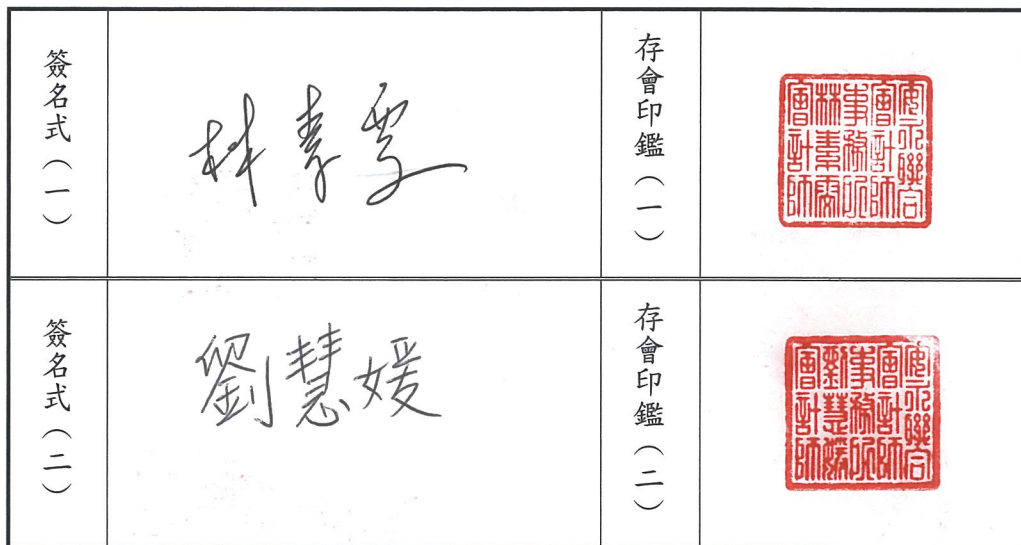 簽名式（一）
林素雯
存會印鑑（一）
安永聯合
會計師
事務所
林素雯
會計師
簽名式（二）
劉慧媛
存會印鑑（二）
安永聯合
會計師
事務所
劉慧媛
會計師